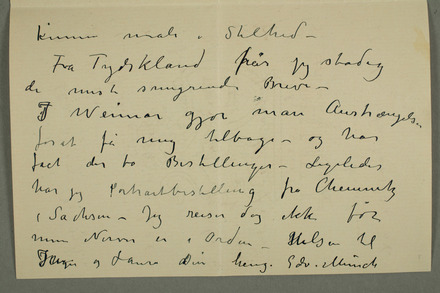 kunne male i Stilhed –
Fra Tydskland får jeg stadig
de mest smigrende Breve –
I Weimar gjør man Anstrængels-
for at få mig tilbage – og har
fået der to Bestillinger – Ligeledes
har jeg Portraitbestilling fra Chemnitz
i Sachsen – Jeg reiser dog ikke før
mine Nerver er i Orden – Hilsen til
Inger og Laura Din heng. Edv. Munch